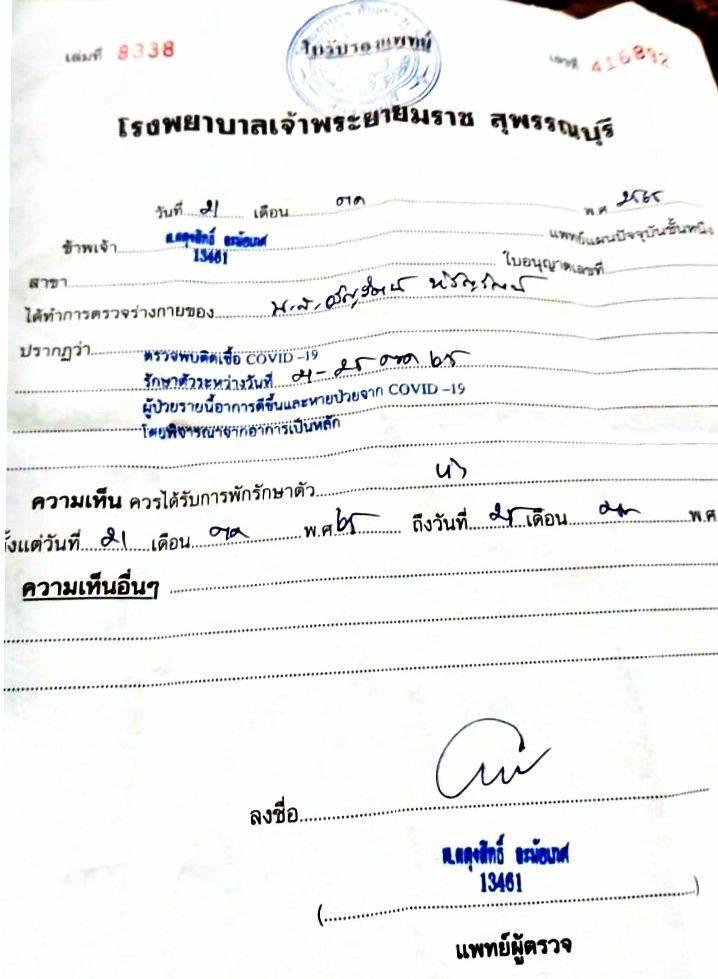 เล่มที่ 8338
ใบรับรองแพทย์
เลขที่ 416892
โรงพยาบาลเจ้าพระยายมราช สุพรรณบุรี
วันที่ 21 เดือน ตค พ.ศ 2565
ข้าพเจ้า แพทย์แผนปัจจุบันชั้นหนึ่ง
13461
สาขา ใบอนุญาตเลขที่
ได้ทำการตรวจร่างกายของ น.ส.
ปรากฏว่า ตรวจพบติดเชื้อ COVID -19
รักษาตัวระหว่างวันที่ 21 - 25 ตค 65
ผู้ป่วยรายนี้อาการดีขึ้นและหายป่วยจาก COVID -19
โดยพิจารณาจากอาการเป็นหลัก
ความเห็น ควรได้รับการพักรักษาตัว
ตั้งแต่วันที่ 21 เดือน ตค พ.ศ 65 ถึงวันที่ 25 เดือน ตค พ.ศ
ความเห็นอื่นๆ
ลงชื่อ
13461
(                    )
แพทย์ผู้ตรวจ